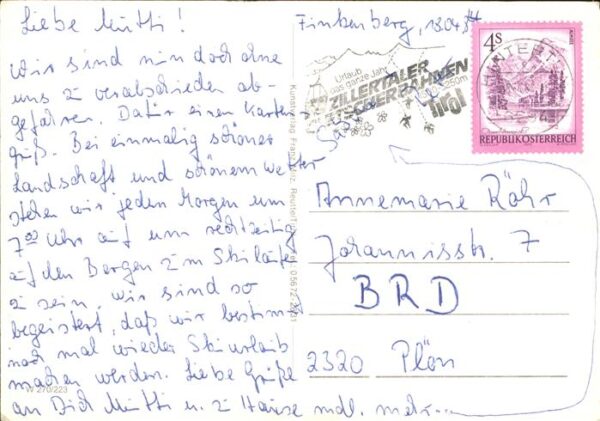 Liebe Mutti!
Wir sind nun doch ohne
uns zu verabschieden ab-
gefahren. Dafür einen Karten-
gruß. Bei einmalig schöner
Landschaft und schönem Wetter
stehen wir jeden Morgen um
7.00 Uhr auf um rechtzeitig
auf den Bergen zum Skilaufen
zu sein. Wir sind so
begeistert, daß wir bestimmt
noch mal wieder Skiurlaub
machen werden. Liebe Grüße
an Dich Mutti u. zu Hause mdl. mehr...
W 270/223
Finkenberg, 18.04.84
Urlaub
das ganze Jahr
ZILLERTALER
GLETSCHERBAHNEN
Tirol
4 S
REPUBLIK ÖSTERREICH
Annemarie Röhr
Johannisstr. 7
BRD
2320 Plön